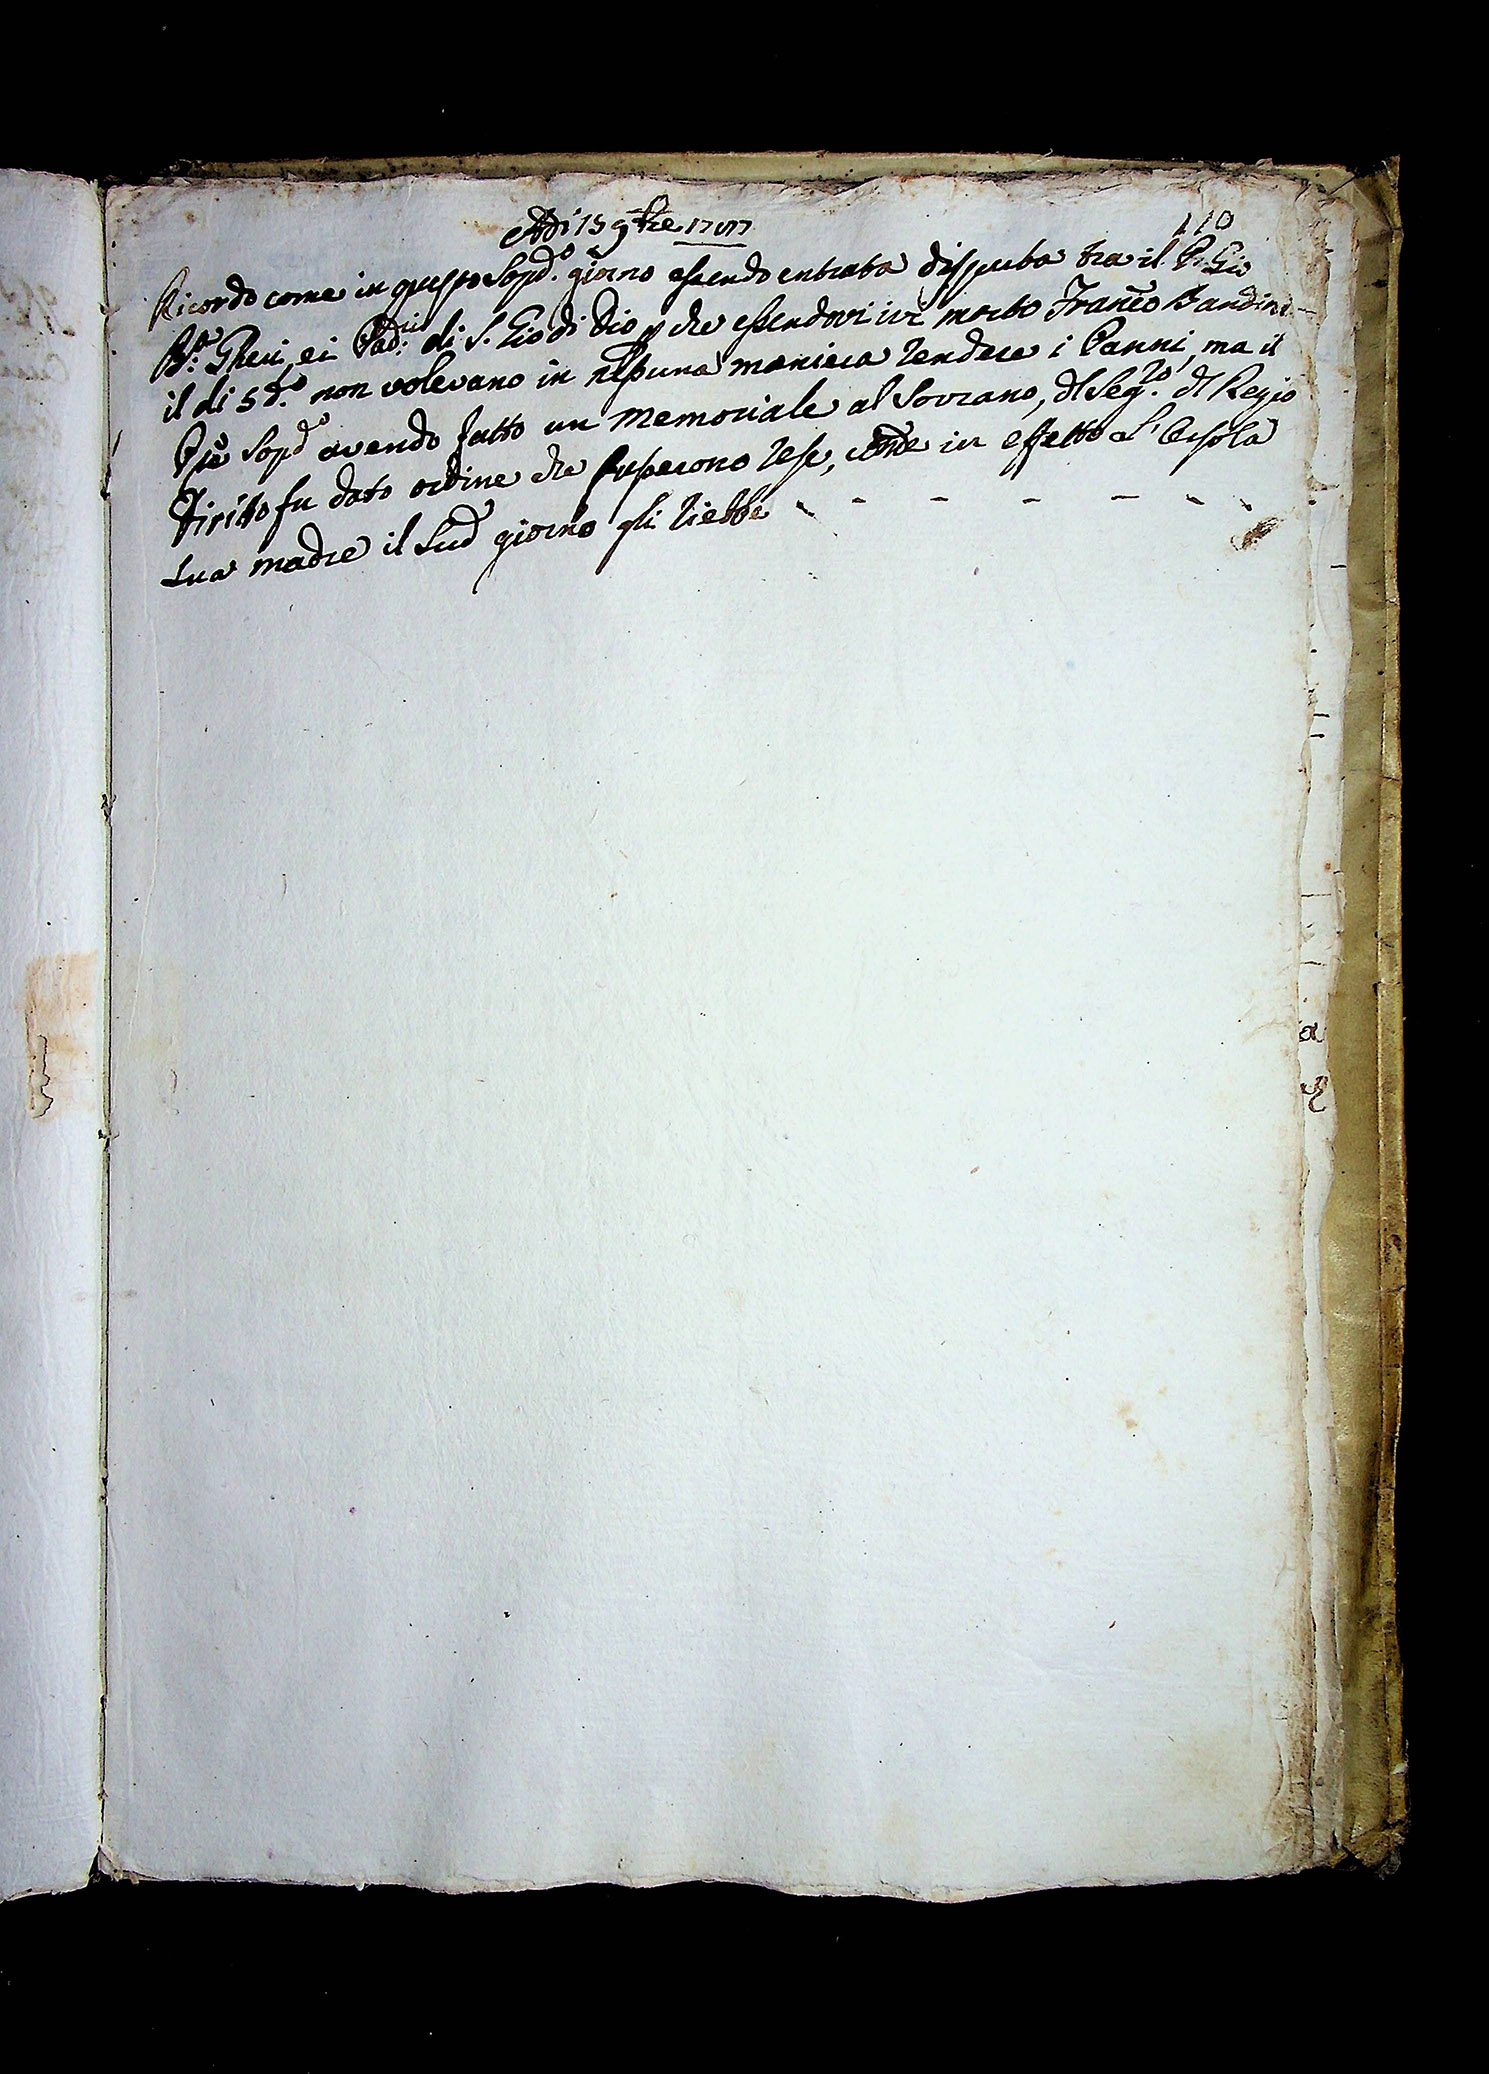 110
Adi 15 9bre 1787
Ricordo come in questo Sopd.o giorno essendo entrata disputa tra il P. Gio
B.a Gheri, e i Pad.ri di S. Gio di Dio p che essendovi ivi morto Franco Bandini
il di 5 d.o non volevano in nessuna maniera rendere i Panni, ma il
Pre Sopd.o avendo fatto un Memoriale al Sovrano, dl Seg.rio dl Regio
Diritto fu dato ordine che fussero rese, onde in effetto L'Orsola
sua madre il Sud giorno gli riebbe - - - - - - -